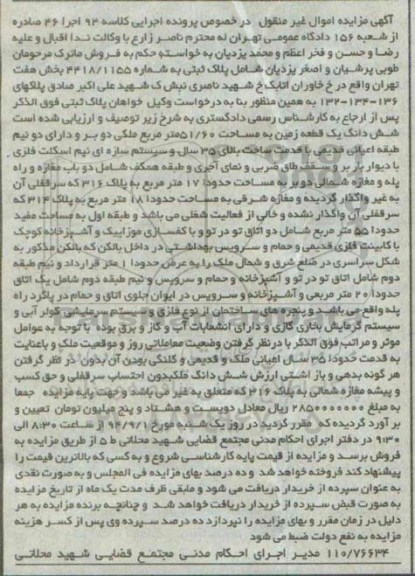 آگهی مزایده اموال غیر منقول در خصوص پرونده اجرایی کلاسه ۹۴ اجرا ۴۶ صادره
از شعبه ۱۵۶ دادگاه عمومی تهران له محترم ناصر زارع با وکالت ندا اقبال و علیه
رضا و حسن و فخر اعظم و محمد یزدیان به خواسته حکم به فروش ماترک مرحومان
طوبی پرشیان و اصغر یزدیان شامل پلاک ثبتی به شماره ۴۴۱۸/۱۱۵۵ بخش هفت
تهران واقع در خ خاوران اتابک خ شهید ناصری نبش ک شهید علی اکبر صادق پلاکهای
۱۳۶-۱۳۴-۱۳۲ به همین منظور بنا به درخواست وکیل خواهان پلاک ثبتی فوق الذکر
پس از ارجاع به کارشناس رسمی دادگستری به شرح زیر توصیف و ارزیابی شده است
شش دانگ یک قطعه زمین به مساحت ۵۱/۶۰ متر مربع ملکی دو بر و دارای دو نیم
طبقه اعیانی قدیمی با قدمت ساخت بالای ۳۵ سال و سیستم سازه ای نیم اسکلت فلزی
با دیوار بار بر و سقف طاق ضربی و نمای آجری و طبقه همکف شامل دو باب مغازه و راه
پله و مغازه شمالی دو بر به مساحت حدودا ۱۷ متر مربع به پلاک ۳۱۶ که سرقفلی آن
به غیر واگذار گردیده و مغازه شرقی به مساحت حدودا ۱۸ متر مربع به پلاک ۳۱۴ که
سرقفلی آن واگذار نشده و خالی از فعالیت شغلی می باشد و طبقه اول به مساحت مفید
حدودا ۵۵ متر مربع شامل دو اتاق تو در تو و با کفسازی موزاییک و آشپزخانه کوچک
با کابینت فلزی قدیمی و حمام و سرویس بهداشتی در داخل بالکن که بالکن مذکور به
شکل سراسری در ضلع شرق و شمال ملک را به عرض حدودا ۱ متر قرارداد و نیم طبقه
دوم شامل اتاق تو در تو و آشپزخانه و حمام و سرویس و نیم طبقه دوم شامل یک اتاق
حدودا ۲۰ متر مربعی و آشپزخانه و سرویس در ایوان جلوی اتاق و حمام در پاگرد راه
پله واقع می باشد و پنجره های ساختمان از نوع فلزی و سیستم سرمایشی کولر آبی و
سیستم گرمایش بخاری گازی و دارای انشعابات آب و گاز و برق بوده با توجه به عوامل
موثر و مراتب فوق الذکر با درنظر گرفتن وضعیت معاملاتی روز و موقعیت ملک و باعنایت
به قدمت حدودا ۳۵ سال اعیانی ملک و قدیمی و کلنگی بودن آن بدون در نظر گرفتن
هر گونه بدهی و باز اشتی ارزش شش دانگ ملکبدون احتساب سرقفلی و حق کسب
و پیشه مغازه شمالی به پلاک ۳۱۶ که متعلق به غیر می باشد و جهت پایه مزایده جمعا
به مبلغ ۲۸۵۰۰۰۰۰۰۰ ریال معادل دویست و هشتاد و پنج میلیون تومان تعیین و
بر آورد گردیده که مقرر گردید در روز یک شنبه مورخ ۹۴/۹/۱ از ساعت ۸:۳۰ الی
۹:۳۰ در دفتر اجرای احکام مدنی مجتمع قضایی شهید محلاتی ط ۵ از طریق مزایده به
فروش برسد و مزایده از قیمت پایه کارشناسی شروع و به کسی که بالاترین قیمت را
پیشنهاد کند فروخته خواهد شد و ده درصد بهای مزایده فی المجلس و به صورت نقدی
به عنوان سپرده از خریدار دریافت می شود و مابقی ظرف مدت یک ماه از تاریخ مزایده
به صورت قبض سپرده از خریدار دریافت خواهد شد و چنانچه برنده مزایده به هر
دلیل در زمان مقرر و بهای مزایده را نپردازد ده درصد سپرده وی پس از کسر هزینه
مزایده به نفع دولت ضبط می شود
۱۱۰/۷۶۶۳۴ مدیر اجرای احکام مدنی مجتمع قضایی شهید محلاتی